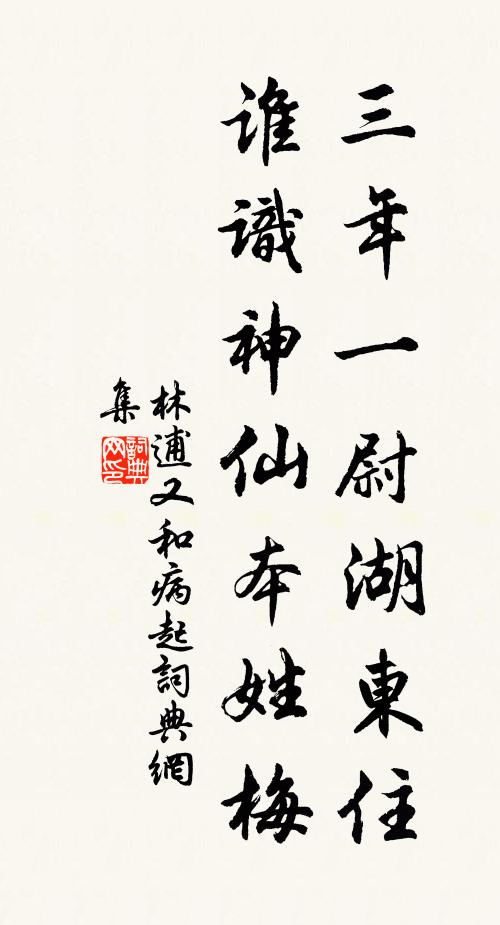 三年一尉湖東住
誰識神仙本姓梅
林逋又和病起詞典網
集
詞典
网印